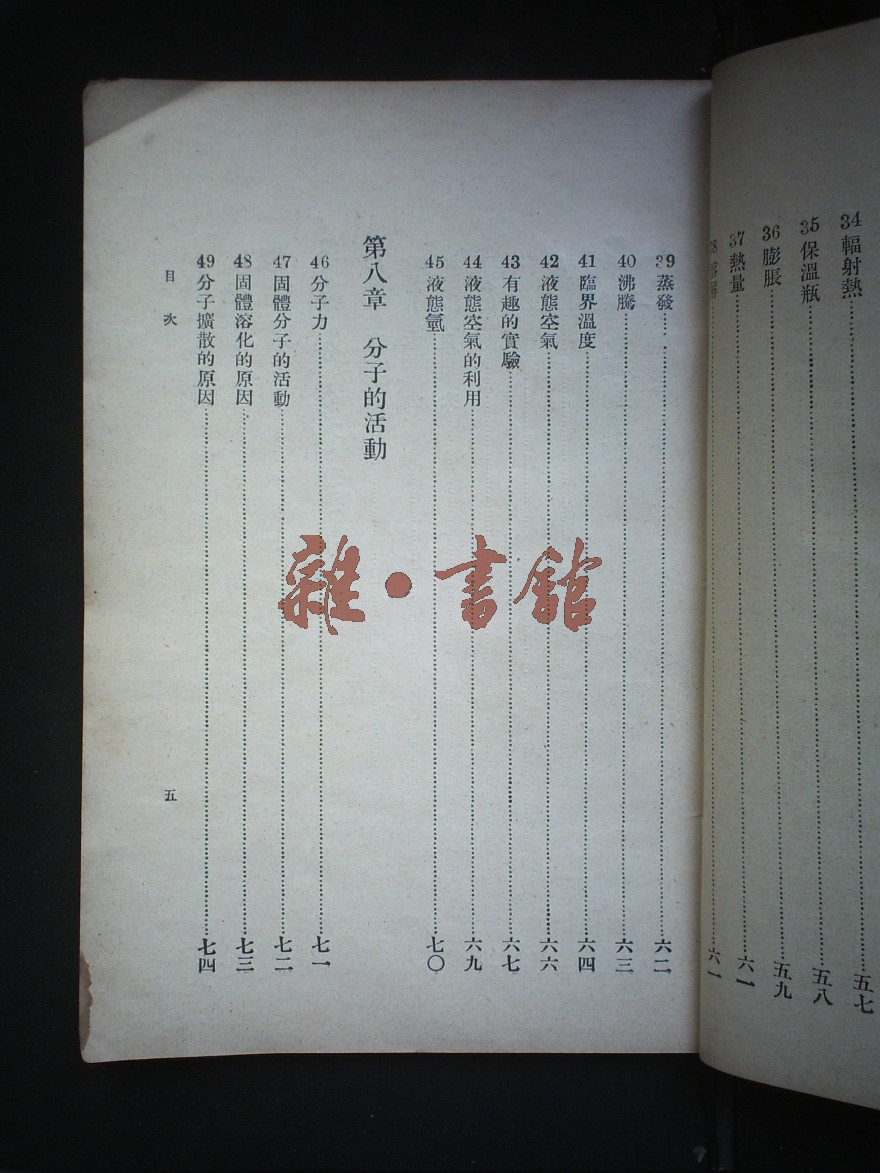 34 輻射熱……五七
35 保溫瓶……五八
36 膨脹……五九
37 熱量……六一
38 溶解……六一
39 蒸發……六二
40 沸騰……六三
41 臨界溫度……六四
42 液態空氣……六六
43 有趣的實驗……六七
44 液態空氣的利用……六九
45 液態氫……七〇
第八章 分子的活動
46 分子力……七一
47 固體分子的活動……七二
48 固體溶化的原因……七三
49 分子擴散的原因……七四
目次
五
雜·書館